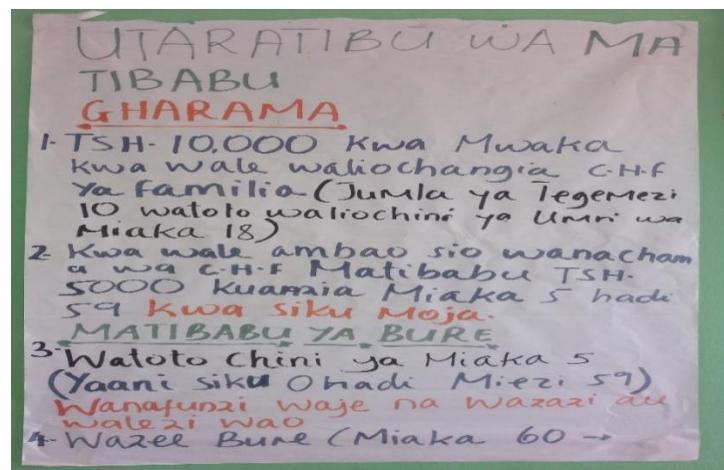 UTARATIBU WA MA
TIBABU
GHARAMA
1- TSH- 10,000 Kwa Mwaka
Kwa wale waliochangia C.H.F
Ya familia (Jumla ya Tegemezi
10 watoto waliochini ya Umri wa
Miaka 18)
2- Kwa wale ambao sio wanacham
a wa C.H.F Matibabu TSH-
5000 kuanzia Miaka 5 hadi
59 Kwa siku Moja.
MATIBABU YA BURE
3- Watoto Chini ya Miaka 5
(Yaani siku 0 hadi Miezi 59)
Wanafunzi waje na Wazazi au
walezi wao
4- Wazee Bure (Miaka 60 →